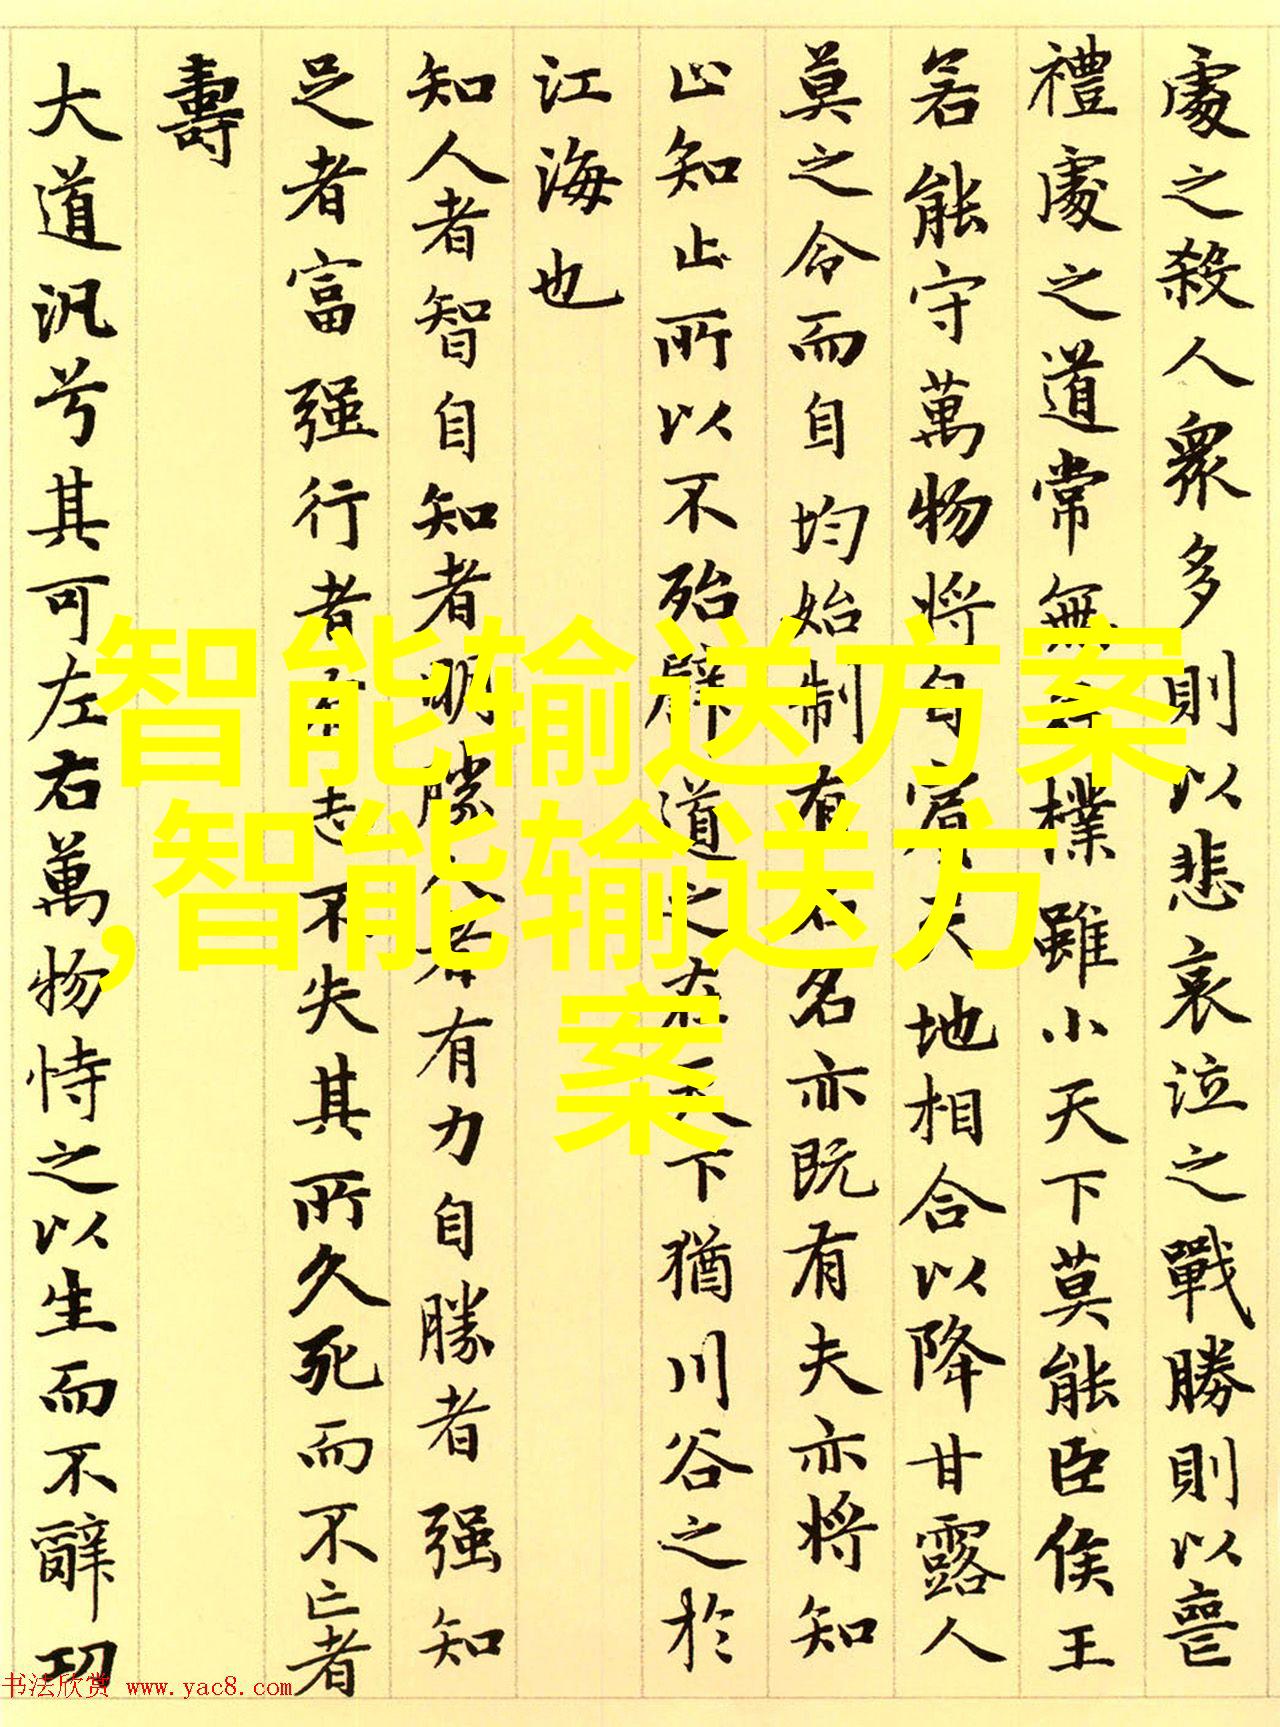 處之殺人衆多則以悲哀泣之戰勝則以喪
禮處之道常無名樸雖小天下莫能臣侯王
若能守萬物將自賓天地相合以降甘露人
莫之令而自均始制有名名亦既有夫亦將知
止知止所以不殆譬道之在天下猶川谷之於
江海也
知人者智自知者明勝人者有力自勝者强知
足者富强行者有志不失其所久死而不亡者
壽
大道汎兮其可左右萬物恃之以生而不辭功
智能输送方案
,智能输送方
案
书法欣赏 www.yac8.com